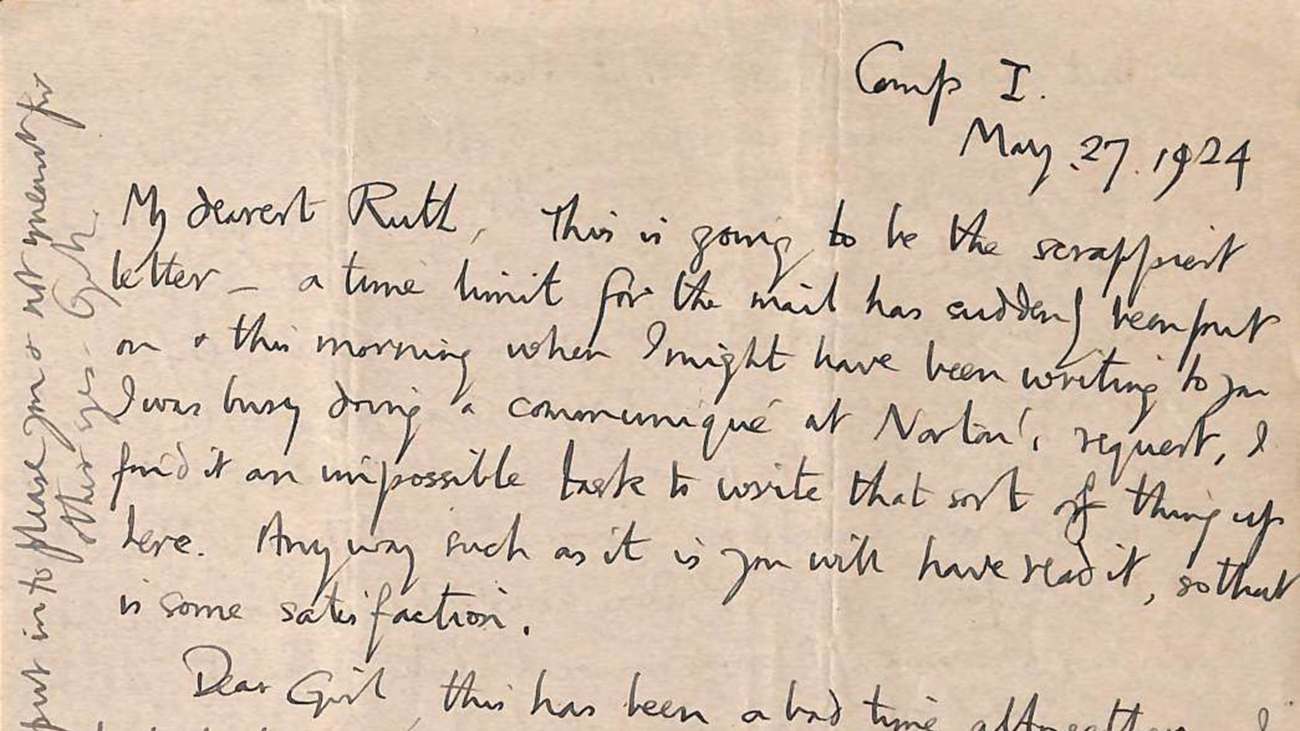 Camp I.
May. 27. 1924
My dearest Ruth, This is going to be the scrappiest
letter – a time limit for the mail has suddenly been put
on & this morning when I might have been writing to you
I was busy doing a communiqué at Norton's request, I
find it an impossible task to write that sort of thing up
here. Anyway such as it is you will have read it, so that
is some satisfaction.
Dear Girl, this has been a bad time altogether
put in to please you & not meant for
other eyes – G.M.